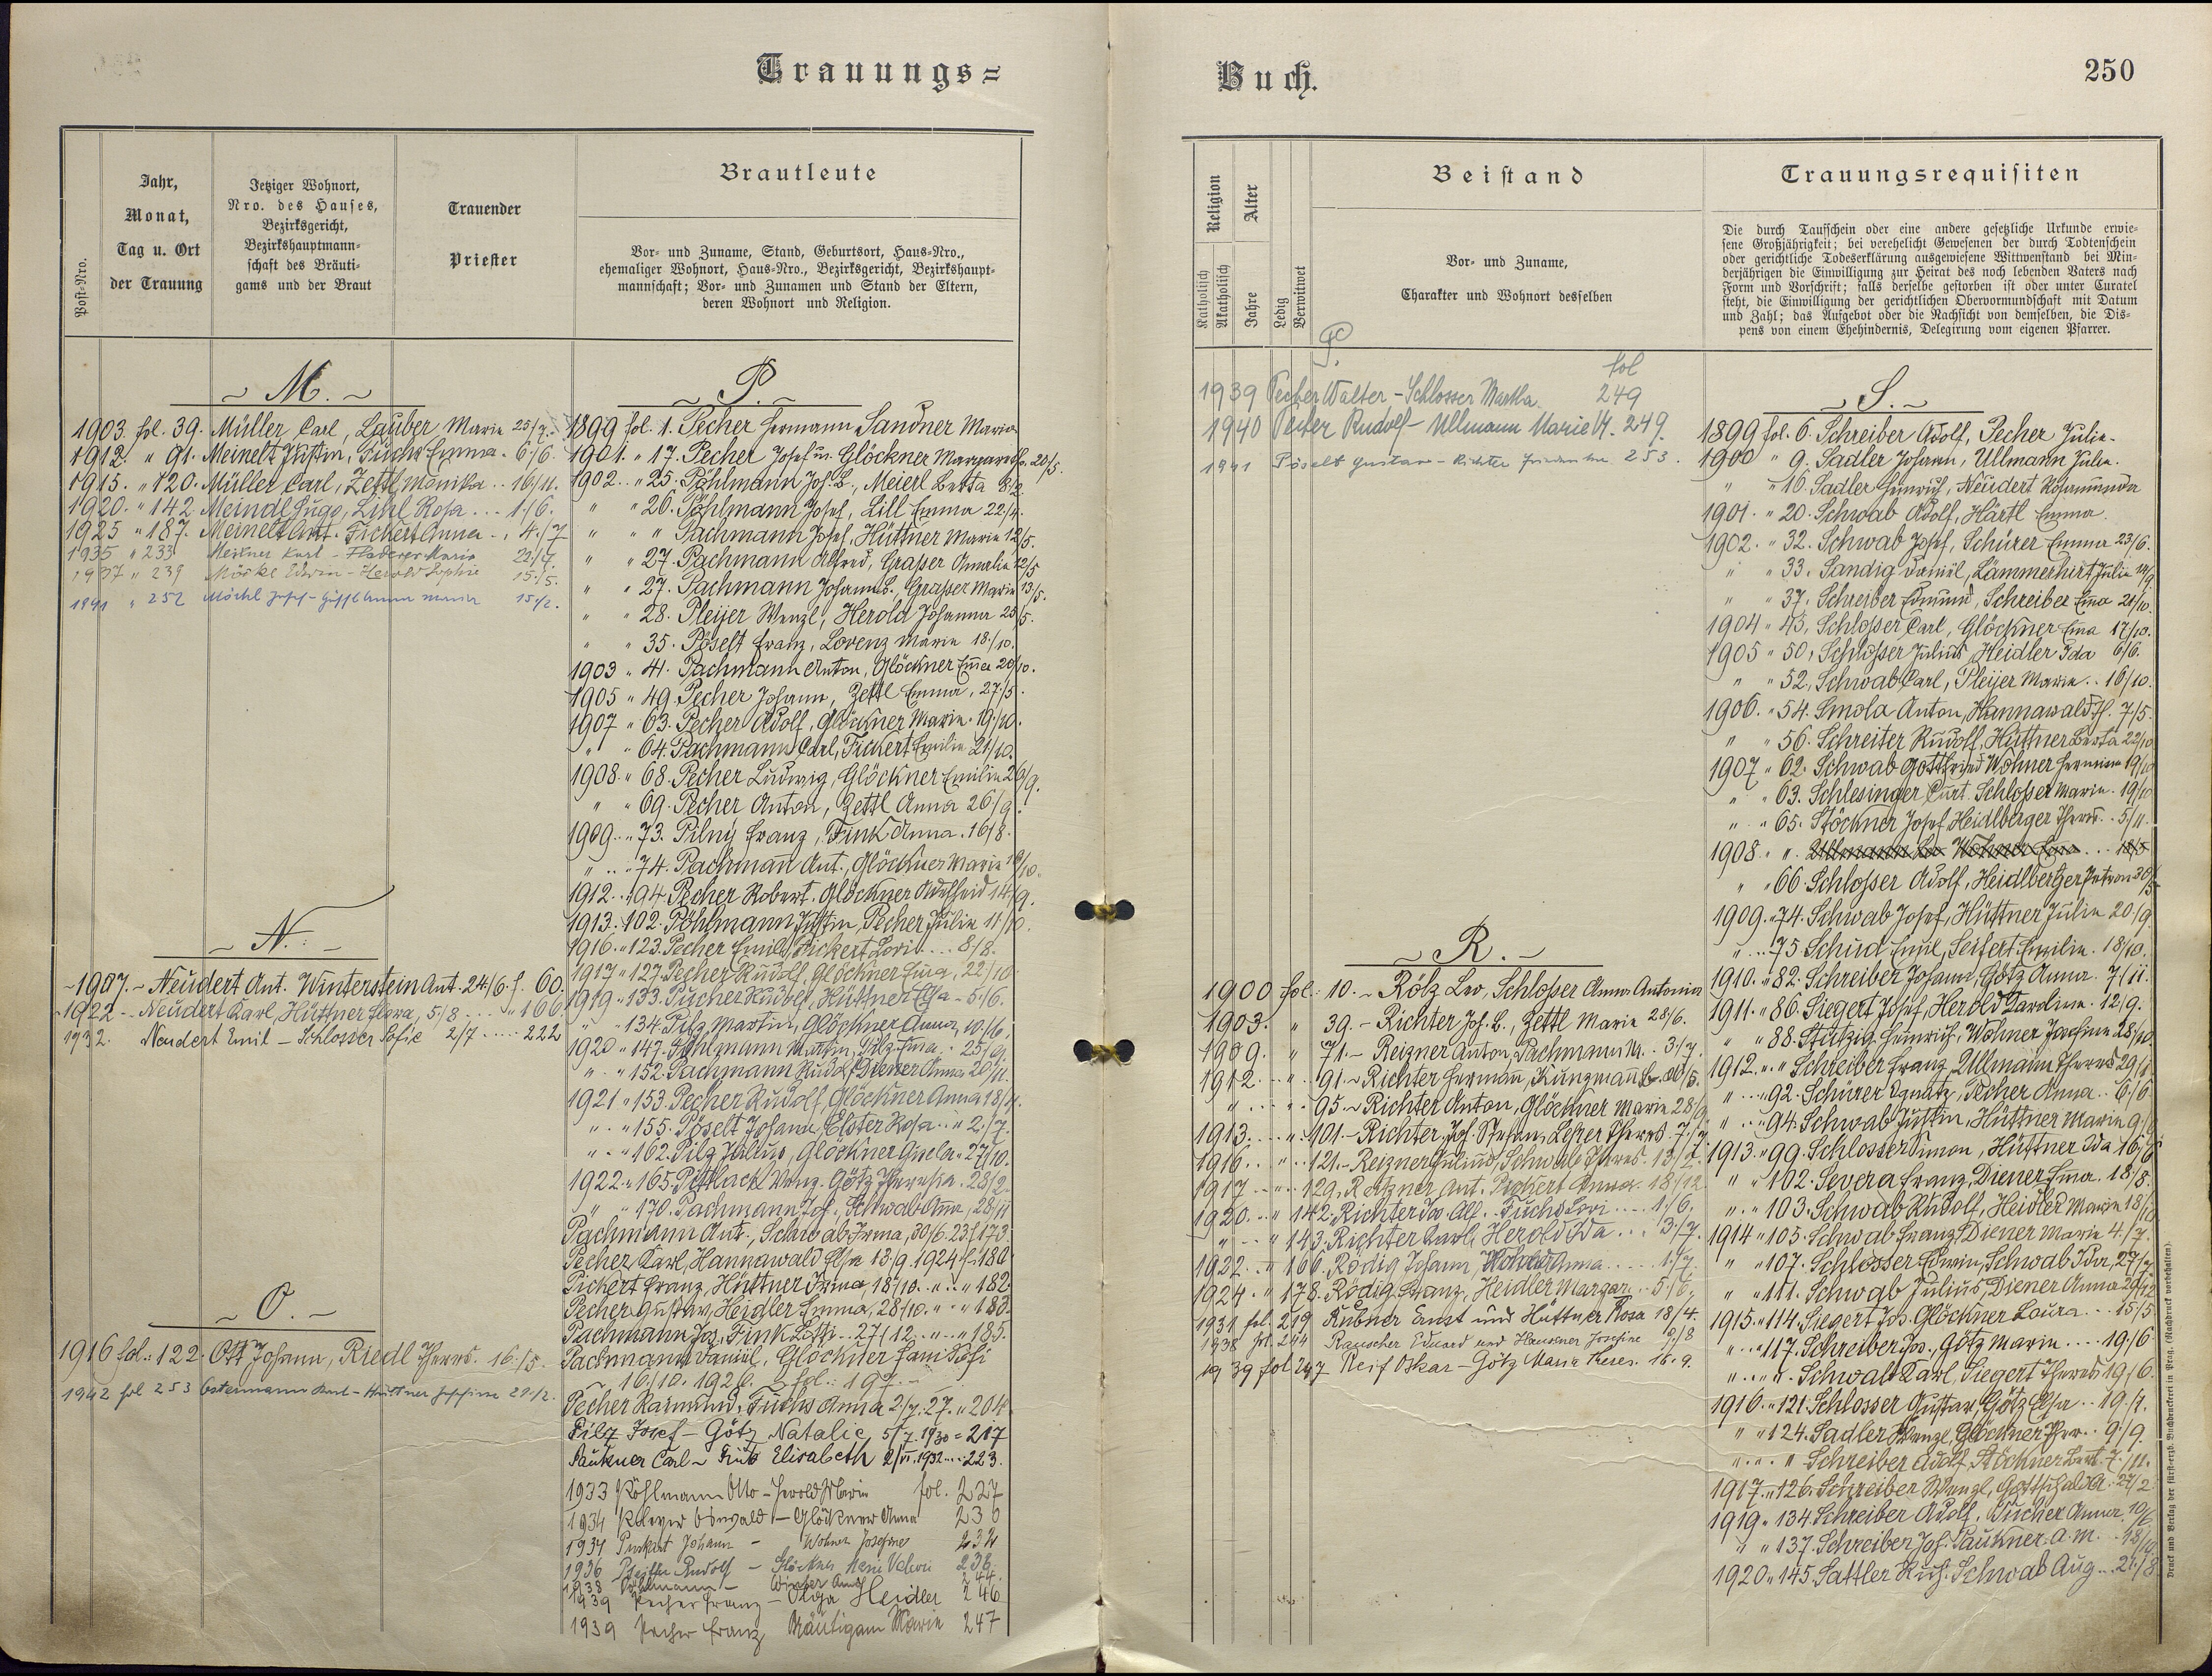 Trauungs=
Post-Nro.
Jahr,
Monat,
Tag u. Ort
der Trauung
Jetziger Wohnort,
Nro. des Hauses,
Bezirksgericht,
Bezirkshauptmann=
schaft des Bräuti=
gams und der Braut
Trauender
Priester
Brautleute
Vor- und Zuname, Stand, Geburtsort, Haus=Nro.,
ehemaliger Wohnort, Haus=Nro., Bezirksgericht, Bezirkshaupt=
mannschaft; Vor= und Zunamen und Stand der Eltern,
deren Wohnort und Religion.
~ M. ~
1903. fol. 39. Müller Carl, Lauber Marie 25/7.
1912. " 91. Meinelt Justin, Fuchs Emma. 6/6.
1915. " 120. Müller Carl, Zettl Monika.. 16/11.
1920. " 142 Meindl Hugo, Lihl Rosa... 1./6.
1925 " 187. Meinelt Ant. Fickert Anna.. 4./7
1935 " 233 Meixner Karl - Marie 21/7.
1937 " 239 Möckl Edwin - Herold Sophie 15./5.
1941 " 252 Möckl Josef - Maria 15./2.
~ N. ~
~1907.~ Neudert Ant. Winterstein Ant. 24/6. f. 60.
1922 -- Neudert Karl, Hüttner Flora, 5/8.... " 166
1932. Neudert Emil - Schlosser Sofie 2/7 .... 222
~ O. ~
1916 fol.: 122. Ott Johann, Riedl Theres. 16./5.
1942 fol 253 Ostermann - Hüttner Josefine 28./2.
~ P. ~
1899 fol. 1. Pecher Hermann Sandner Maria
1901. " 17. Pecher Josef u. Glöckner Margareth. 20/5.
1902.. " 25. Pöhlmann Jos. B., Meierl Berta 8/2.
" " 26. Pöhlmann Josef, Lill Emma 22/4.
" " " Pachmann Josef, Hüttner Marie 12/5.
" " 27. Pachmann Alfred, Grasser Amalie 12/5
" " 27. Pachmann Johann B., Grasser Marie 13/5.
" " 28. Pleijer Wenzl, Herold Johanna 25/5.
" " 35. Pöselt Franz, Lorenz Marie 18./10.
1903 " 41. Pachmann Anton, Glöckner Emma 20/10.
1905 " 49. Pecher Johann, Zettl Emma, 27./5.
1907 " 63. Pecher Adolf, Glöckner Marie. 19./10.
" " 64. Pachmann Carl, Fickert Emilie 21/10.
1908. " 68. Pecher Ludwig, Glöckner Emilie 26/9.
" " 69. Pecher Anton, Zettl Anna 26./9.
1909.. " 73. Pilný Franz, Fink Anna. 16/8.
" .. " 74. Pachmann Ant., Glöckner Marie 19/10.
1912.. " 94. Pecher Robert. Glöckner Adelheid 14/9.
1913. " 102. Pöhlmann Justin, Pecher Julie 11/10.
1916. " 123. Pecher Emil, Fickert ... 8/8.
1917 " 127. Pecher Rudolf, Glöckner 22/10.
1919 " 133. Pucher Rudolf, Hüttner Elsa - 5/6.
" " 134. Pilz Martin, Glöckner Anna, 10./6,
1920 " 147. Pöhlmann Martin, Pilz Ema.. 25/9.
" " 152. Pachmann Rudolf Diener Anna 20/11.
1921 " 153. Pecher Rudolf, Glöckner Anna 18/1.
" " 155. Pöselt Johann, Elster Rosa.. " 2./7.
" " 162. Pilz Julius, Glöckner 27/10.
1922. " 165. Pittlack Wenz. Götz Theresia. 28/2.
" " 170. Pachmann Jos., Schwab Anna, 28/11
Pachmann Ant., Schwab Irma, 30/6. 23. f. 173.
Pecher Karl, Hannawald Elsa 13/9. 1924 f. 180
Pickert Franz, Hüttner Irma, 18/10. " " " 182.
Pecher Gustav, Heidler Emma, 28/10. " " " 183.
Pachmann Jos., Fink Lotti.. 27/12. " .. " 185.
Pachmann Daniel, Glöckner
16./10. 1926. fol.: 197.
Pecher Raimund, Fuchs Anna 2/7. 27. " 204.
Pilz Josef - Götz Natalie 5/7. 1930 = 217
Paukner Carl ~ Elisabeth 2/VI. 1932 ... 223.
1933 Pöhlmann Otto - Herold Marie fol. 227
1934 Pleyer Oswald - Glöckner Anna 230
1934 Johann - Wohner Josefine 232
1936 Pfeiffer Rudolf - Glöckner Marie 236
1938 Pöhlmann - Winter Anna 244.
1939 Pecher Franz - Olga Heidler 246
1939 Pecher Franz Bräutigam Marie 247
Buch.
250
Religion
Katholisch
Akatholisch
Alter
Jahre
Ledig
Verwitwet
Beistand
Vor= und Zuname,
Charakter und Wohnort desselben
Trauungsrequisiten
Die durch Taufschein oder eine andere gesetzliche Urkunde erwie=
sene Großjährigkeit; bei verehelicht Gewesenen der durch Todtenschein
oder gerichtliche Todeserklärung ausgewiesene Wittwenstand bei Min=
derjährigen die Einwilligung zur Heirat des noch lebenden Vaters nach
Form und Vorschrift; falls derselbe gestorben ist oder unter Curatel
steht, die Einwilligung der gerichtlichen Obervormundschaft mit Datum
und Zahl; das Aufgebot oder die Nachsicht von demselben, die Dis=
pens von einem Ehehindernis, Delegirung vom eigenen Pfarrer.
P.
fol
1939 Pecher Walter - Schlosser Martha. 249
1940 Pecher Rudolf - Ullmann Marie 249.
1941 Pöselt Gustav - Richter 253.
~ R. ~
1900 fol.: 10. ~ Rölz Leo, Schlosser Anna Antonia
1903. " 39. - Richter Jos. B., Zettl Marie 28/6.
1909. " 71. - Reizner Anton, Pachmann M.. 3/7.
1912... " 91. ~ Richter Hermann, Kunzmann
" ... " 95. ~ Richter Anton, Glöckner Marie 28/9
1913.... " 101. - Richter Jos. Stefan, Leszer Theres. 7./7.
1916... " 121. - Reizner Julius, Schwab Theres. 13/2.
1917 ... " 129. Reizner Ant. Anna. 18/12
1920... " 142. Richter Alf.. Fuchs ... 1./6,
" ... " 143. Richter Karl, Herold Ida... 3./7.
1922... " 166. Rödig Johann, Anna.... 1./7.
1924. " 178. Rödig Franz, Heidler Margar. 5/6,
1931 fol. 219 Rubner Ernst und Hüttner Rosa 18/4.
1938 fol. 244 Rauscher Eduard und Josefine /8
1939 fol 247 Reif Oskar - Götz Marie Theres. 16. 9.
~ S. ~
1899 fol. 6. Schreiber Adolf, Pecher Julie.
1900 " 9. Sadler Johann, Ullmann Julie.
" " 10. Sadler Heinrich, Neudert Rosamunda
1901. " 20. Schwab Adolf, Härtl Emma.
1902. " 32. Schwab Josef, Schürer Emma 23/6.
" " 33. Sandig Daniel, Lämmerhirt Julie 14/9.
" " 37. Schreiber Edmund, Schreiber Ema 21/10.
1904 " 45. Schlosser Carl, Glöckner Ema 17/10.
1905 " 50, Schlosser Julius, Heidler Ida 6/6.
" " 52, Schwab Carl, Pleijer Marie.. 16/10.
1906. " 54. Smola Anton, Hannawald Th. 7./5.
" " 56. Schreiter Rudolf, Hüttner Berta 22/10
1907 " 62. Schwab Gottfried Wohner Hermine 19/10
" " 63. Schlesinger Curt. Schlosser Marie. 19/10
" " 65. Stöckner Josef Heidlberger Theres.. 5/11.
1908. " ". Ullmann Wohner
" " 66 Schlosser Adolf, Heidlberger 30/5
1909. " 74. Schwab Josef, Hüttner Julie 20/9.
" .. " 75 Schud Emil, Seifert Emilie. 18/10.
1910. " 82. Schreiber Johann, Götz Anna. 7/11.
1911. " 86. Siegert Josef, Herold Karoline. 12/9.
" " 88. Stutzig Heinrich, Wohner Josefine 28/10.
1912. " " Schreiber Franz, Ullmann Theres 29/1.
" ... " 92. Schürer Ignatz, Pecher Anna.. 6/6
" ... " 94. Schwab Justin, Hüttner Marie 9/
1913. " 99. Schlosser Simon, Hüttner Ida 16/6
" " 102. Severa Franz, Diener Ema. 18./8.
" .. " 103. Schwab Rudolf, Heidler Marie 18/10
1914 " 105. Schwab Franz Diener Marie 4./7.
" " 107. Schlosser Edwin, Schwab Ida, 27/7.
" " 111. Schwab Julius, Diener Anna
1915. " 114. Siegert Jos. Glöckner Laura... 15/5
" ... " 117. Schreiber Jos., Götz Marie.... 19/6
" ... ". Schwab Karl, Siegert Theres 19/6.
1916. " 121. Schlosser Gustav, Götz Elsa.. 19./2.
" " 124. Sadler Wenzl, Glöckner Ther.. 9/9.
" .. " " Schreiber Adolf, Stöckner Bert. 7./11.
1917. " 126. Schreiber Wenzl, Gottschald A. 27/2
1919. " 134. Schreiber Adolf, Pucher Anna. 10/6
" " 137. Schreiber Jos. Paukner A. M. . 18/10
1920. " 145. Sattler Rich. Schwab Aug... 21./8
Druck und Verlag der fürst-erzb. Buchdruckerei in Prag. (Nachdruck vorbehalten).